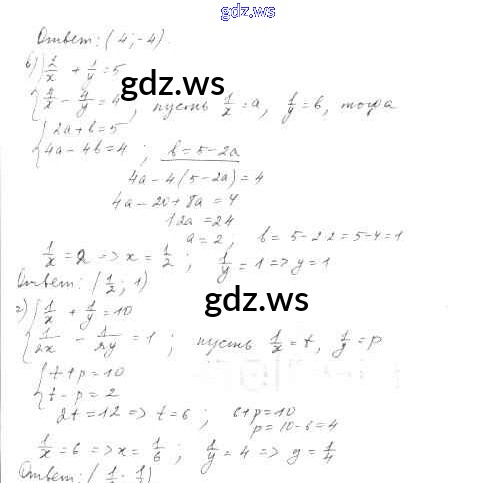 gdz.ws
Ответ: (4; -4).
в) { 2/x + 1/y = 5
4/x - 4/y = 4 ; пусть 1/x = a, 1/y = b, тогда
gdz.ws
{ 2a + b = 5
4a - 4b = 4 ; b = 5 - 2a
4a - 4(5 - 2a) = 4
4a - 20 + 8a = 4
12a = 24
a = 2 ; b = 5 - 2·2 = 5 - 4 = 1
1/x = 2 => x = 1/2 ; 1/y = 1 => y = 1
Ответ: (1/2 ; 1)
gdz.ws
г) { 1/x + 1/y = 10
1/2x - 1/2y = 1 ; пусть 1/x = t, 1/y = p
{ t + p = 10
t - p = 2
2t = 12 => t = 6 ; 6 + p = 10
p = 10 - 6 = 4
1/x = 6 => x = 1/6 ; 1/y = 4 => y = 1/4
gdz.ws
Ответ: (1/6 ; 1/4)